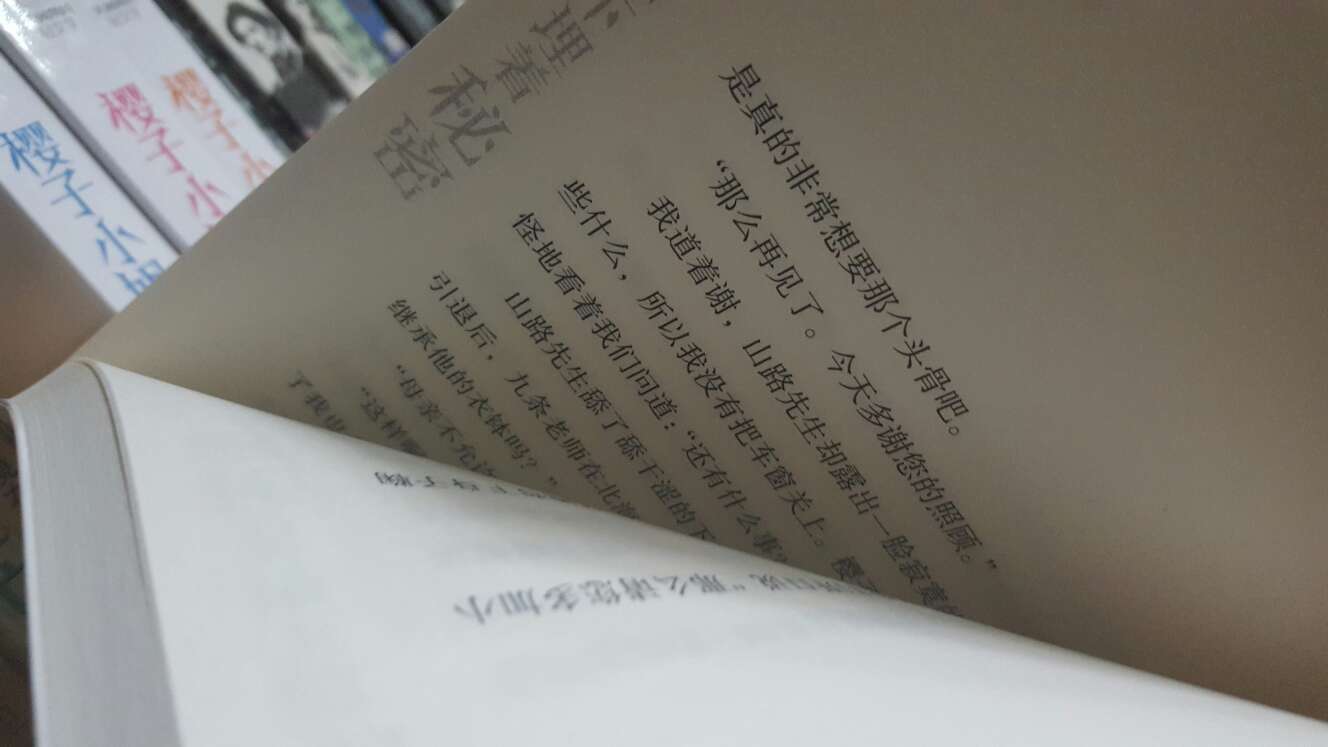 樱子小姐
樱子小
樱子小
下埋着秘密
是真的非常想要那个头骨吧。
“那么再见了。今天多谢您的照顾。”
我道着谢，山路先生却露出一脸寂寞
些什么，所以我没有把车窗关上。樱
怪地看着我们问道：“还有什么事
山路先生舔了舔干涩的下
引退后，九条老师在北海
继承他的衣钵吗？”
“母亲不允许
“这样
了我山
“那么请您多加小